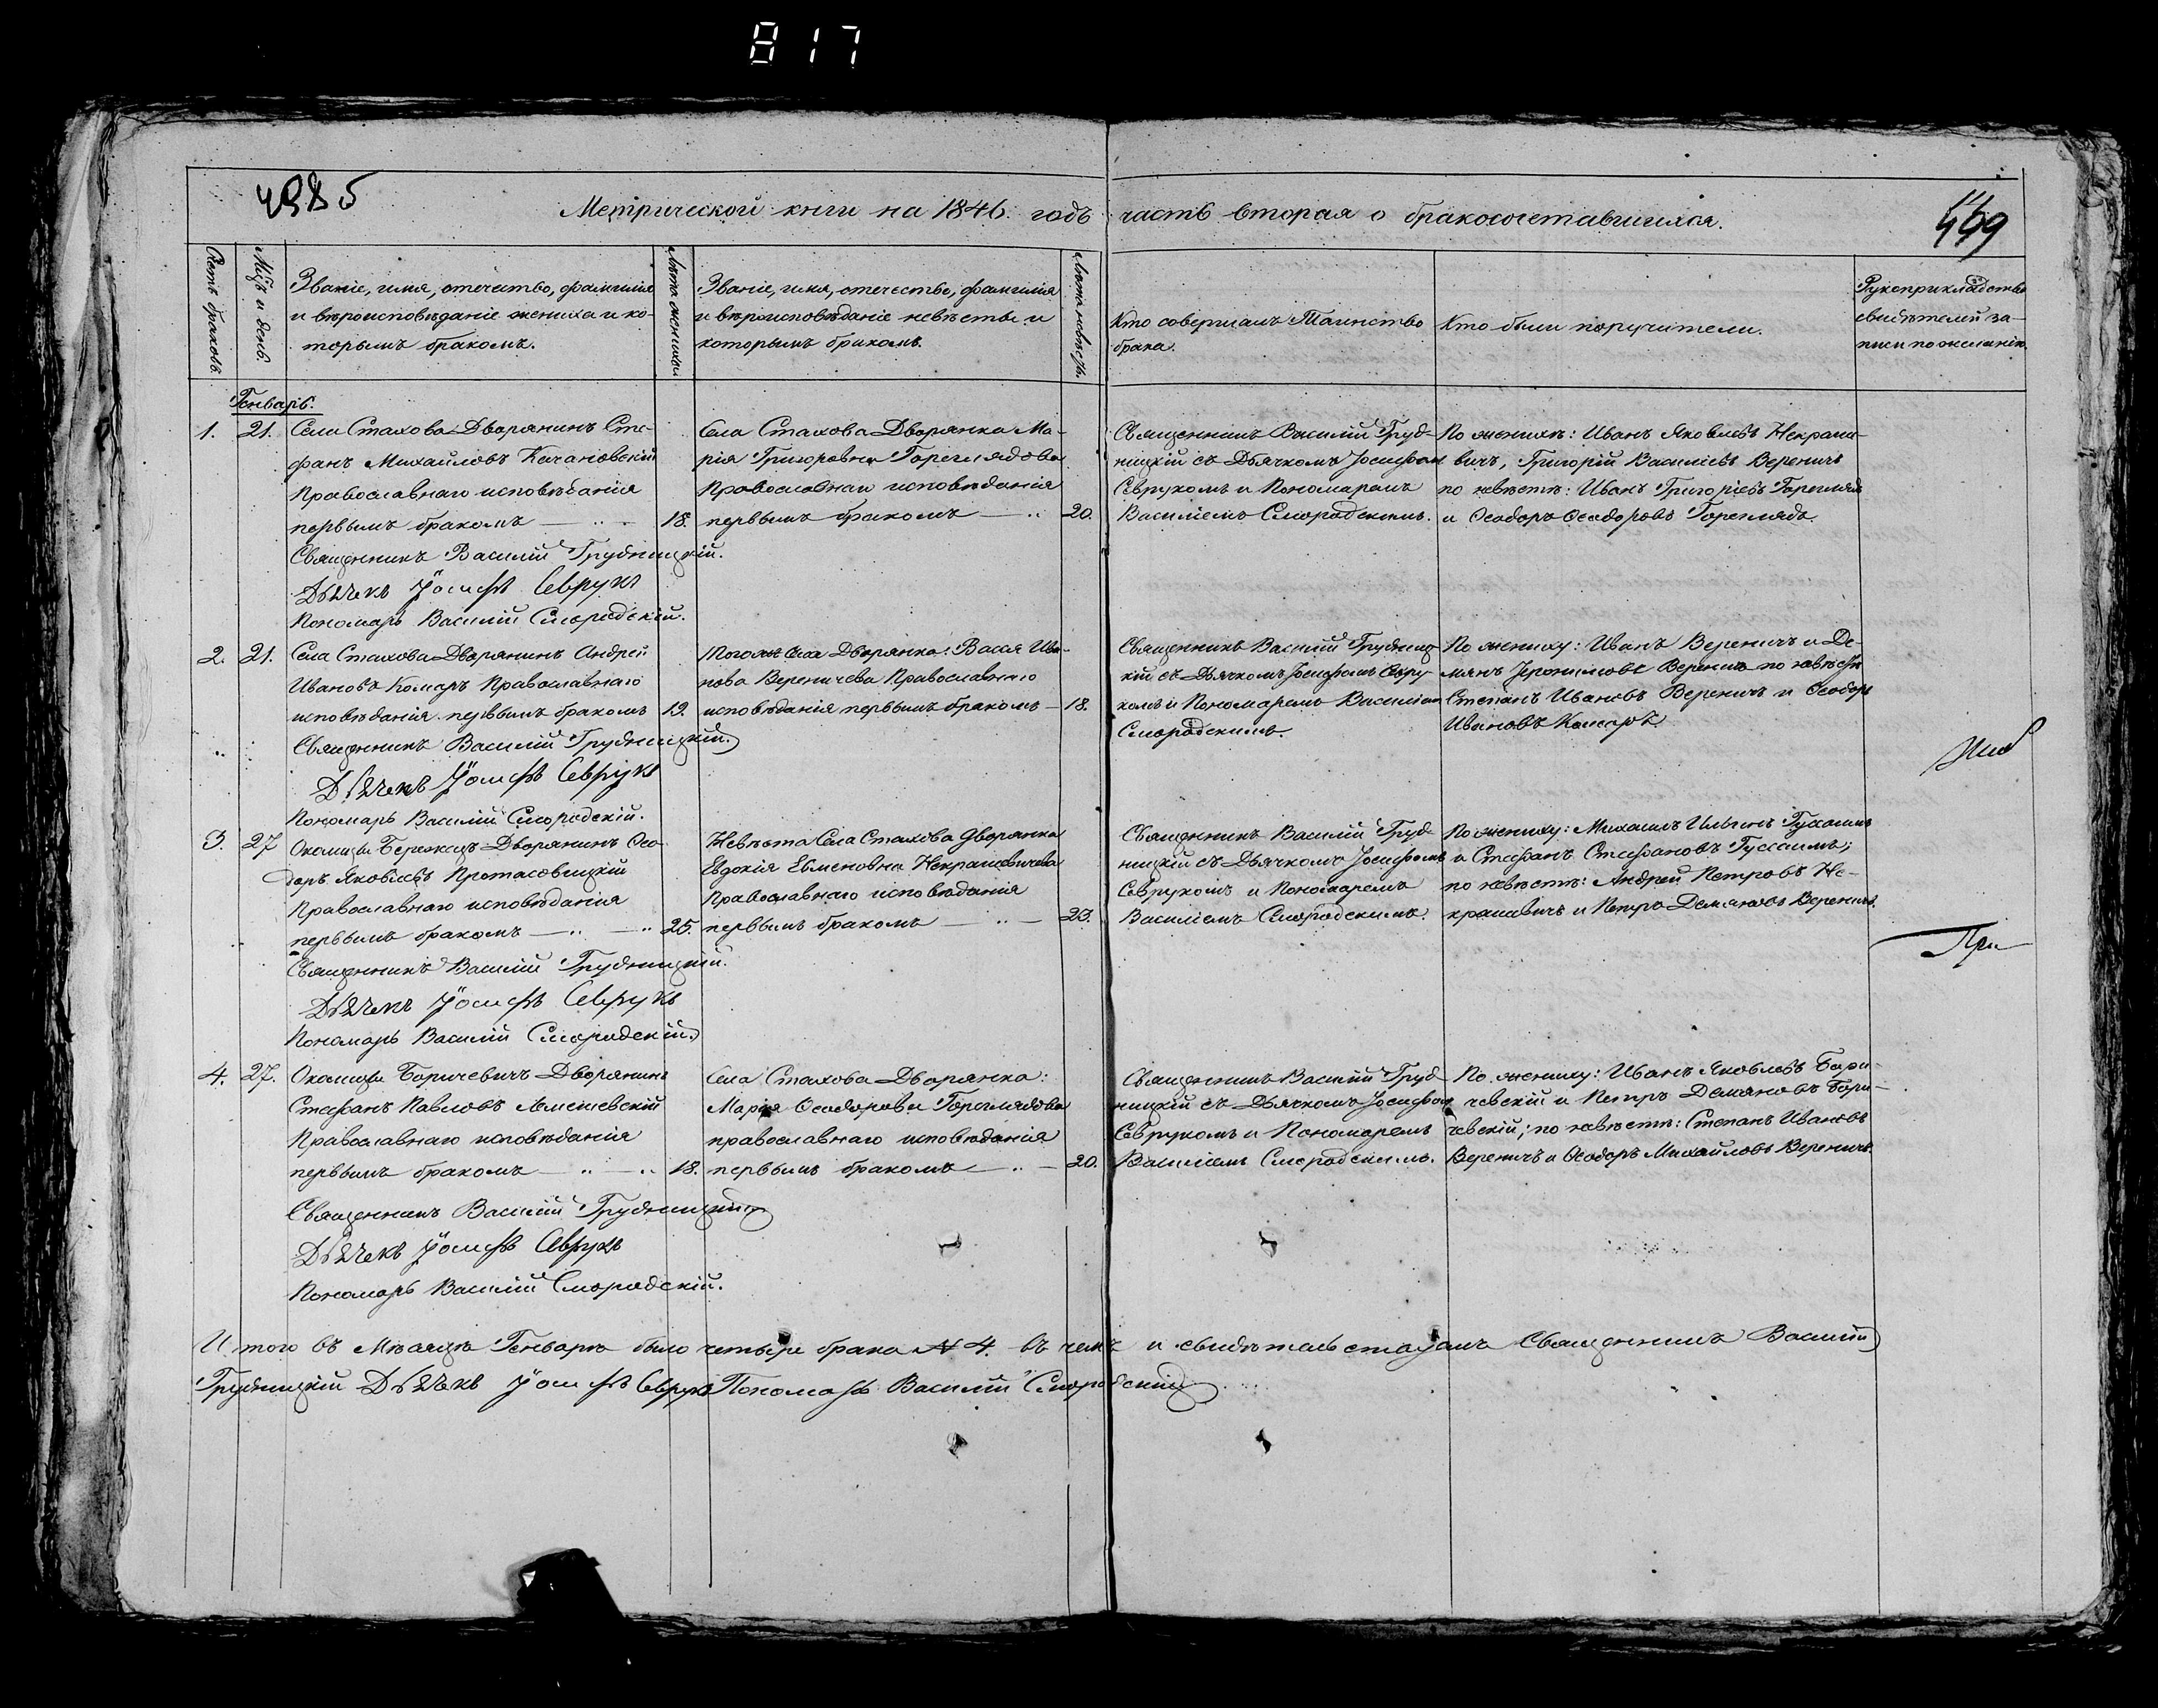 817
4985
Метрической книги на 1846. годъ часть вторая о бракосочетавшихся.
449
Счетъ браковъ.
Мцъ и день.
Званіе, имя, отечество, фамилия
и вѣроисповѣданіе жениха и ко-
торымъ бракомъ.
Лѣта жениха
Званіе, имя, отечество, фамилія
и вѣроисповѣданіе невѣсты и
которымъ бракомъ.
Лѣта невѣсты.
Кто совершалъ Таинство
брака.
Кто были поручители.
Рукоприкладство
свидѣтелей за-
писи по желанію.
Генварь.
1. 21.
Села Стахова Дворянинъ Сте-
фанъ Михайловъ Качановскій
Православнаго исповѣданія
первымъ бракомъ 18.
Села Стахова Дворянка Ма-
рія Григоровна Гореглядова
Православнаго исповѣданія
первымъ бракомъ 20.
Священникъ Василій Груд-
ницкій съ Дьячкомъ Іосифомъ
Севрукомъ и Пономаремъ
Василіемъ Смородскимъ.
По женихѣ: Иванъ Яковлевъ Некраше-
вичъ, Григорій Василіевъ Вереничъ
по невѣстѣ: Иванъ Григоріевъ Гореглядъ
и Ѳеодоръ Ѳеодоровъ Гореглядъ.
Священникъ Василій Грудницкій.
Дьячекъ Іосифъ Севрукъ
Пономарь Василій Смородскій.
2. 21.
Села Стахова Дворянинъ Андрей
Ивановъ Комаръ Православнаго
исповѣданія первымъ бракомъ 19.
Того же Села Дворянка: Васса Ива-
нова Вереничева Православнаго
исповѣданія первымъ бракомъ 18.
Священникъ Василій Грудниц-
кій съ Дьячкомъ Іосифомъ Севру-
комъ и Пономаремъ Василіемъ
Смородскимъ.
По жениху: Иванъ Вереничъ и Де-
мянъ Іеронимовъ Вереничъ по невѣстѣ
Степанъ Ивановъ Вереничъ и Ѳеодоръ
Ивановъ Комаръ.
Священникъ Василій Грудницкій.
Дьячекъ Іосифъ Севрукъ
Пономарь Василій Смородскій.
3. 27
Околицы Бережецъ Дворянинъ Ѳео-
доръ Яковлевъ Протасовицкій
Православнаго исповѣданія
первымъ бракомъ 25.
Невѣста Села Стахова Дворянка
Евдокія Евменовна Некрашевичева
Православнаго исповѣданія
первымъ бракомъ 23.
Священникъ Василій Груд-
ницкій съ Дьячкомъ Іосифомъ
Севрукомъ и Пономаремъ
Василіемъ Смородскимъ.
По жениху: Михаилъ Ильинъ
и Стефанъ Стефановъ
по невѣстѣ: Андрей Петровъ Не-
крашевичъ и Петръ Демяновъ Вереничъ.
При
Священникъ Василій Грудницкій.
Дьячекъ Іосифъ Севрукъ
Пономарь Василій Смородскій.
4. 27.
Околицы Боричевичъ Дворянинъ
Стефанъ Павловъ Лемешевскій
Православнаго исповѣданія
первымъ бракомъ 18.
Села Стахова Дворянка:
Марія Ѳеодорова Гореглядова
православнаго исповѣданія
первымъ бракомъ 20.
Священникъ Василій Груд-
ницкій съ Дьячкомъ Іосифомъ
Севрукомъ и Пономаремъ
Василіемъ Смородскимъ.
По жениху: Иванъ Яковлевъ Бори-
чевскій и Петръ Демяновъ Бори-
чевскій; по невѣстѣ: Степанъ Ивановъ
Вереничъ и Ѳеодоръ Михайловъ Вереничъ.
Священникъ Василій Грудницкій
Дьячекъ Іосифъ Севрукъ
Пономарь Василій Смородскій.
Итого въ Мѣсяцѣ Генварѣ было четыре брака № 4. въ чемъ и свидѣтельствуемъ Священникъ Василій
Грудницкій Дьячекъ Іосифъ Севрукъ Пономарь Василій Смородскій